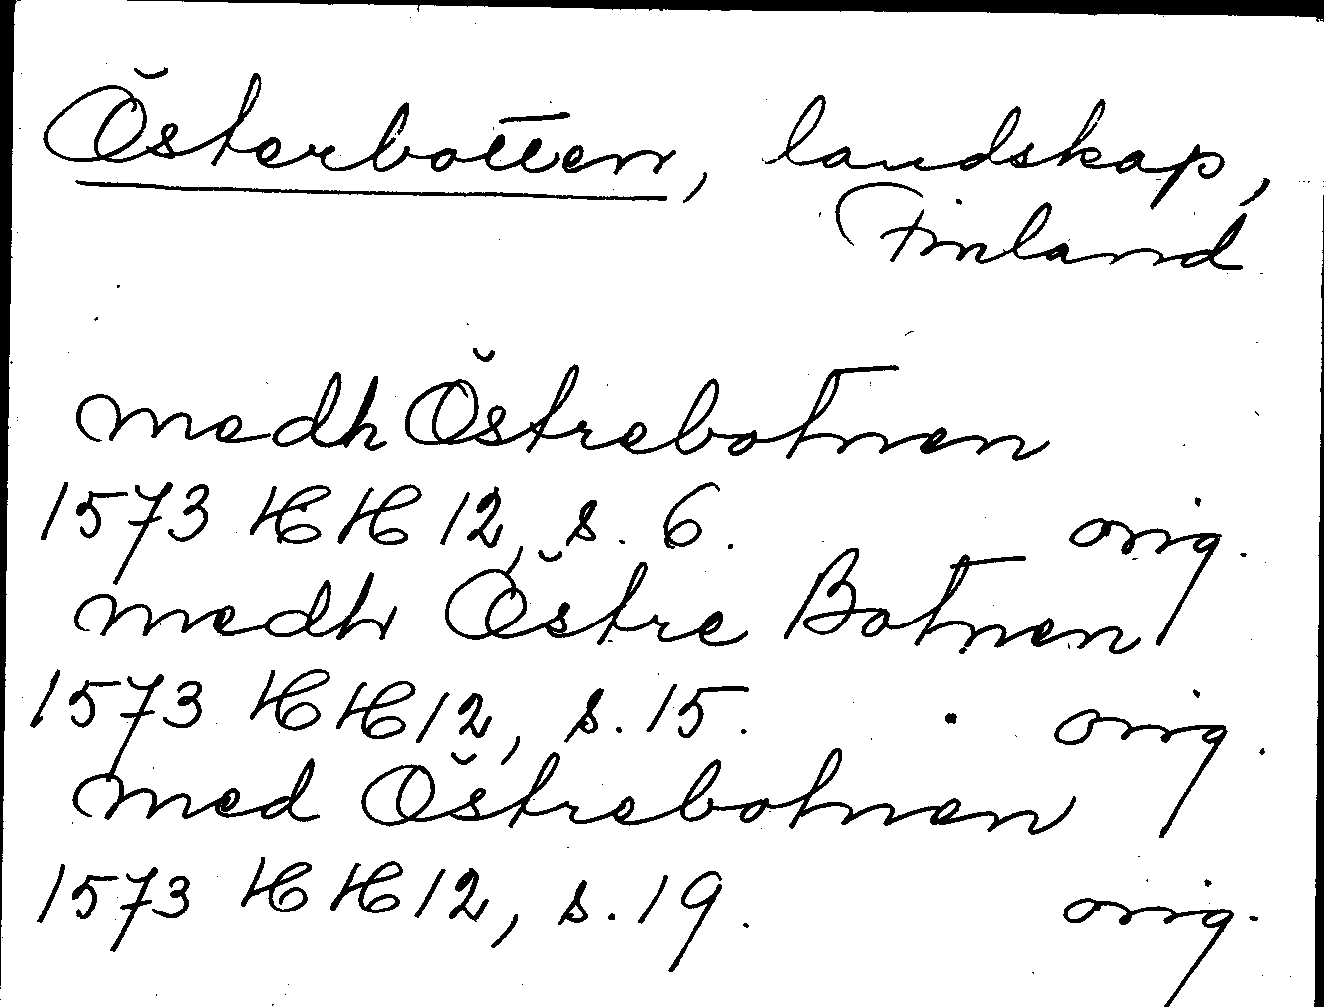 Österbotten, landskap,
Finland
medh Östrebotnen
1573 HH 12, s. 6. orig.
medh Östre Botnen
1573 HH 12, s. 15. orig.
med Östrebotnen
1573 HH 12, s. 19. orig.